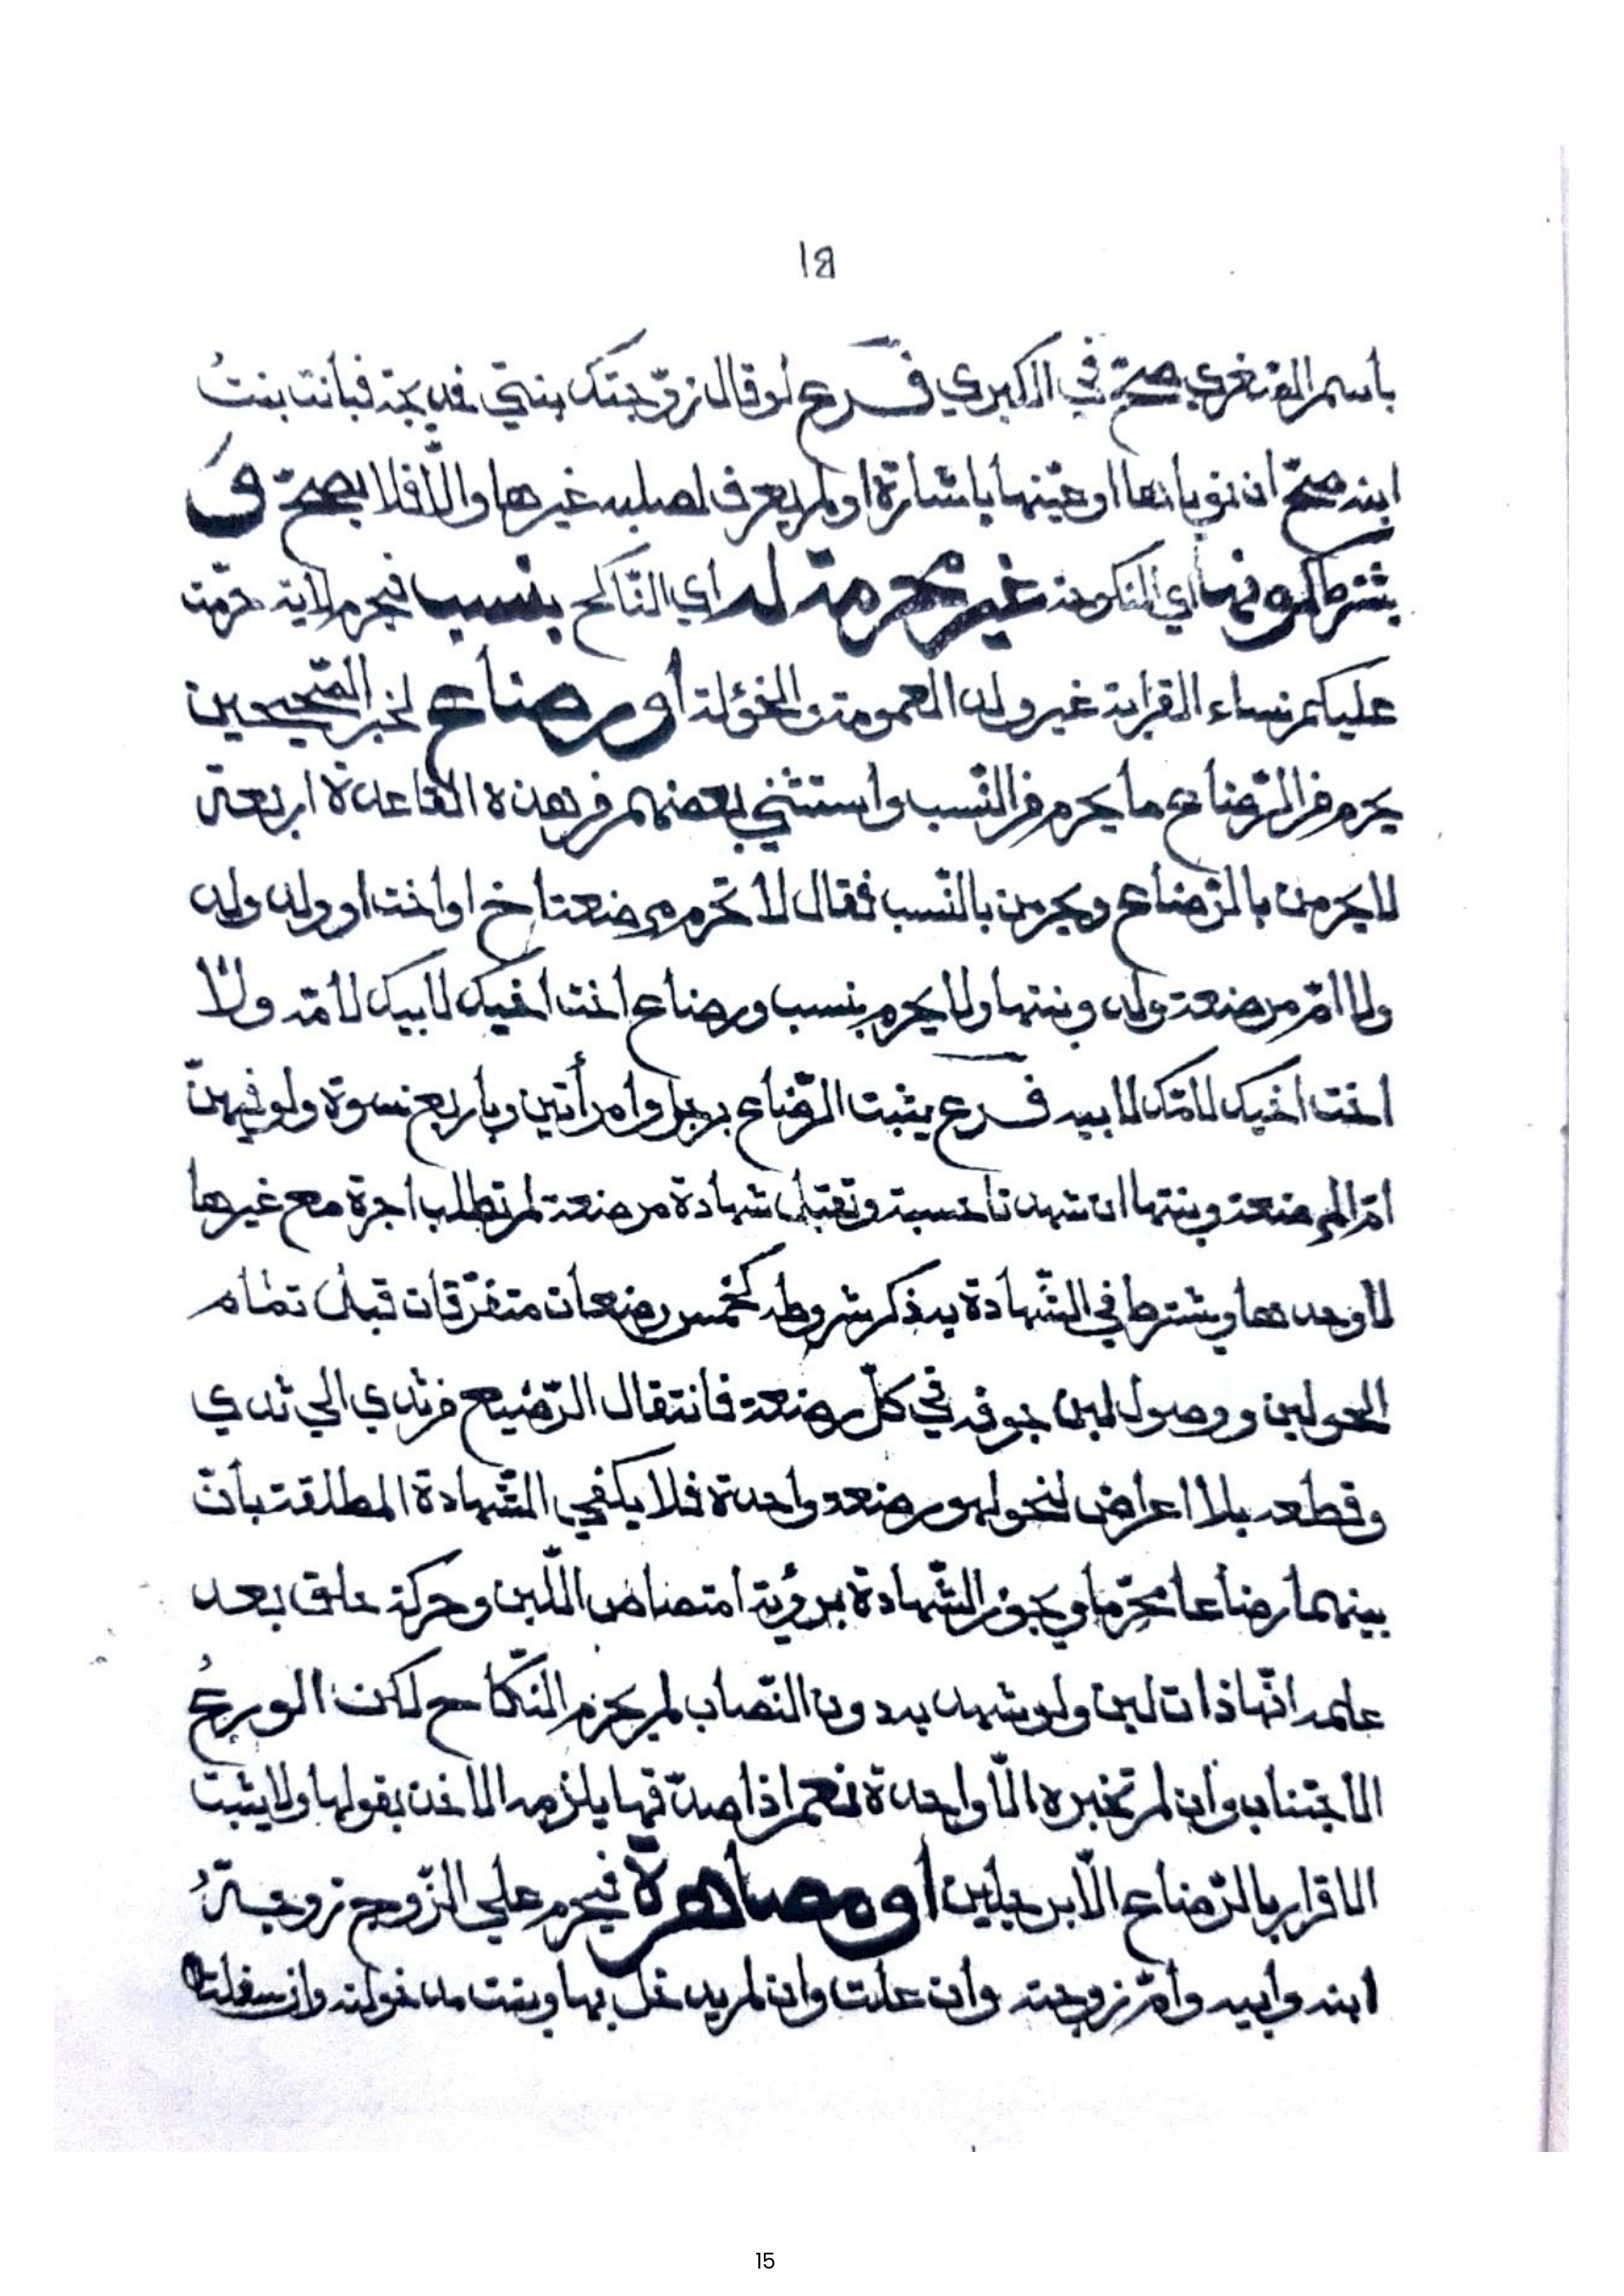 ١٥
باسم الصغرى صحّ في الكبرى فــرع لو قال زوّجتك بنتي خديجة فبانت بنتُ
ابنه صحّ ان نوياها او عيّنها باشارة او لم يعرف لصلبه غيرها والّا فلا يصحّ وَ
يشترط كونها اي المنكوحة غير محرمة له اي النّاكح بنسب فيحرم لاية حرّمت
عليكم نساء القرابة غير ولد العمومة والخؤلة أو رضاع لخبر الصّحيحين
يحرم من الرّضاع ما يحرم من النّسب واستثني بعضهم من هذه القاعدة اربعة
لا يحرمن بالرّضاع ويحرمن بالنّسب فقال لا تحرم مرضعة اخ او اخت او ولد ولد
ولا امّ مرضعة ولد وبنتها ولا يحرم بنسب ورضاع اخت اخيك لابيك لامّه ولا
اخت اخيك لامّك لابيه فــرع يثبت الرّضاع برجل وامرأتين وباربع نسوة ولو فيهنّ
امّ المرضعة وبنتها ان شهدتا حسبة وتقبل شهادة مرضعة لم تطلب اجرة مع غيرها
لا وحدها ويشترط في الشّهادة به ذكر شروطه كخمس رضعات متفرّقات قبل تمام
الحولين ووصول لبن جوفه في كلّ رضعة فانتقال الرّضيع من ثدي الي ثدي
وقطعه بلا اعراض لنحو لهو رضعة واحدة فلا يكفي الشّهادة المطلقة بأنّ
بينهما رضاعا محرّما ويجوز الشّهادة برؤية امتصاص اللّبن وحركة حلق بعد
علمه انّها ذات لبن ولو شهد به دون النّصاب لم يحرم النّكاح لكن الورعُ
الاجتناب وان لم تخبره الّا واحدة نعم اذا صدّقها يلزمه الاخذ بقولها ولا يثبت
الاقرار بالرّضاع الّا برجلين أو مصاهرة فيحرم علي الزّوج زوجةُ
ابنه وابيه وأمّ زوجته وان علت وان لم يدخل بها وبنت مدخولته وان سفلت
15